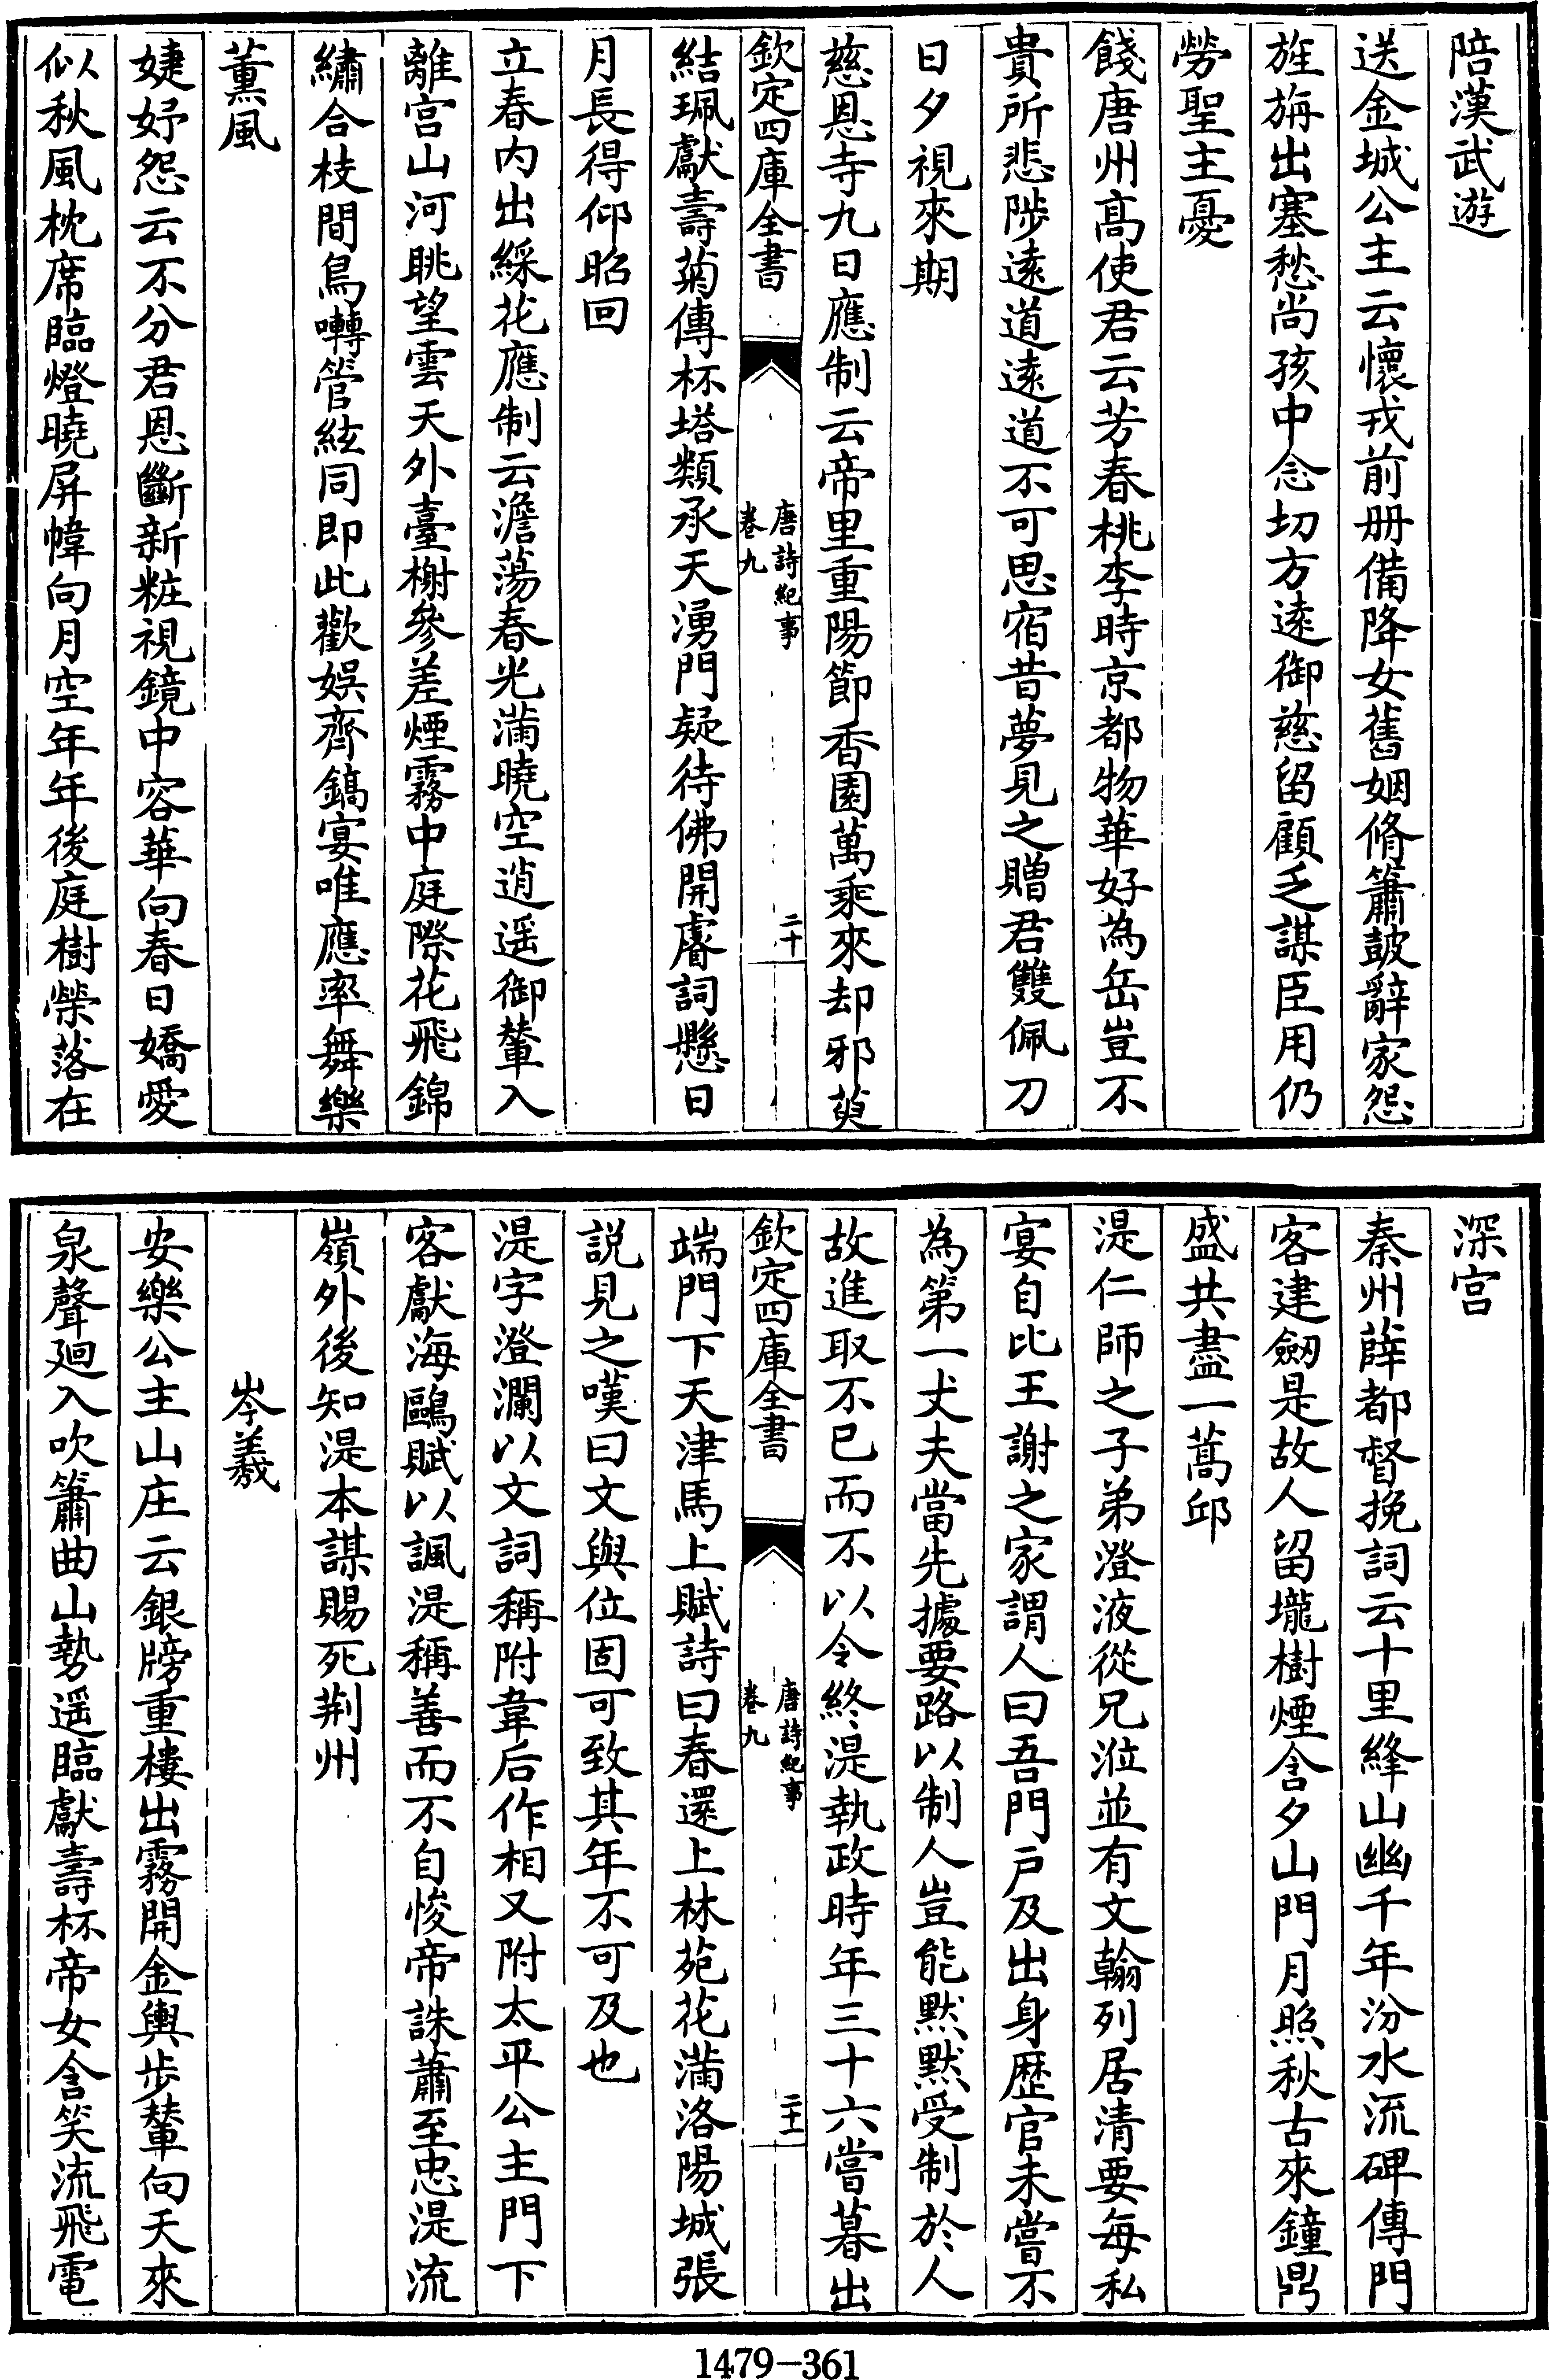 陪漢武遊
送金城公主云懷戎前册備降女舊姻脩簫鼓辭家怨
旌旃出塞愁尚孩中念切方遠御慈留顧乏謀臣用仍
勞聖主憂
餞唐州高使君云芳春桃李時京都物華好為岳豈不
貴所悲陟遠道遠道不可思宿昔夢見之贈君雙佩刀
日夕視來期
慈恩寺九日應制云帝里重陽節香園萬乘來却邪萸
欽定四庫全書
唐詩紀事
卷九
二十
結珮獻壽菊傳杯塔類承天湧門疑待佛開睿詞懸日
月長得仰昭回
立春内出綵花應制云澹蕩春光滿曉空逍遥御輦入
離宫山河眺望雲天外臺榭參差煙霧中庭際花飛錦
繡合枝間鳥囀管絃同即此歡娛齊鎬宴唯應率舞樂
薰風
婕妤怨云不分君恩斷新粧視鏡中容華向春日嬌愛
似秋風枕席臨燈曉屏幃向月空年年後庭樹榮落在
深宫
秦州薛都督挽詞云十里絳山幽千年汾水流碑傳門
客建劒是故人留壠樹煙含夕山門月照秋古來鐘鼎
盛共盡一蒿邱
湜仁師之子弟澄液從兄涖並有文翰列居清要每私
宴自比王謝之家謂人曰吾門户及出身歴官未嘗不
為第一丈夫當先據要路以制人豈能默默受制於人
故進取不已而不以令終湜執政時年三十六嘗暮出
欽定四庫全書
唐詩紀事
卷九
二十一
端門下天津馬上賦詩曰春還上林苑花滿洛陽城張
説見之嘆曰文與位固可致其年不可及也
湜字澄瀾以文詞稱附韋后作相又附太平公主門下
客獻海鷗賦以諷湜稱善而不自悛帝誅蕭至忠湜流
嶺外後知湜本謀賜死荆州
岑羲
安樂公主山庄云銀牓重樓出霧開金輿步輦向天來
泉聲廻入吹簫曲山勢遥臨獻壽杯帝女含笑流飛電
1479-361